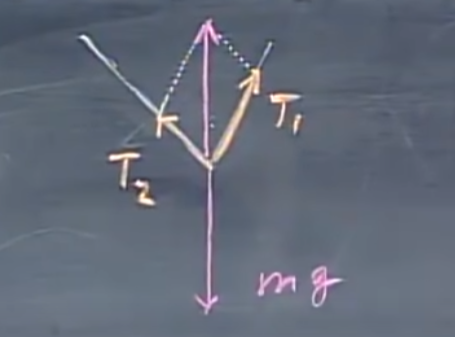 T₁
T₂
mg